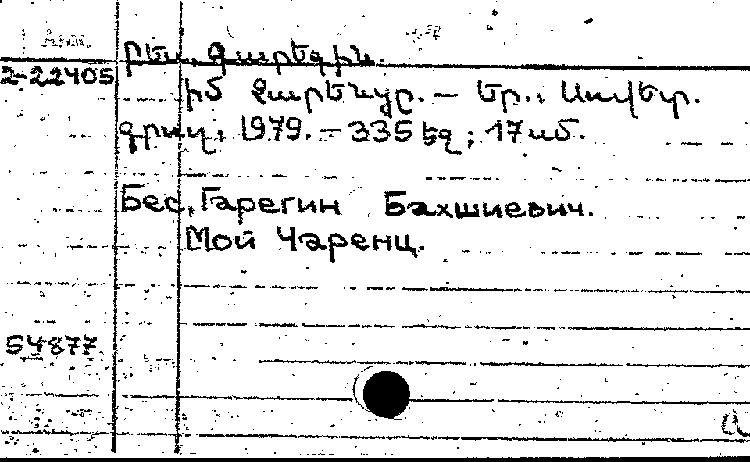 Բես, Գարեգին.
2-22405
Իմ Չարենցը. – Եր., Սովետ.
գրող, 1979. – 335 եզ; 17սմ.
Бес, Гарегин Бахшиевич.
Мой Чаренц.
54877